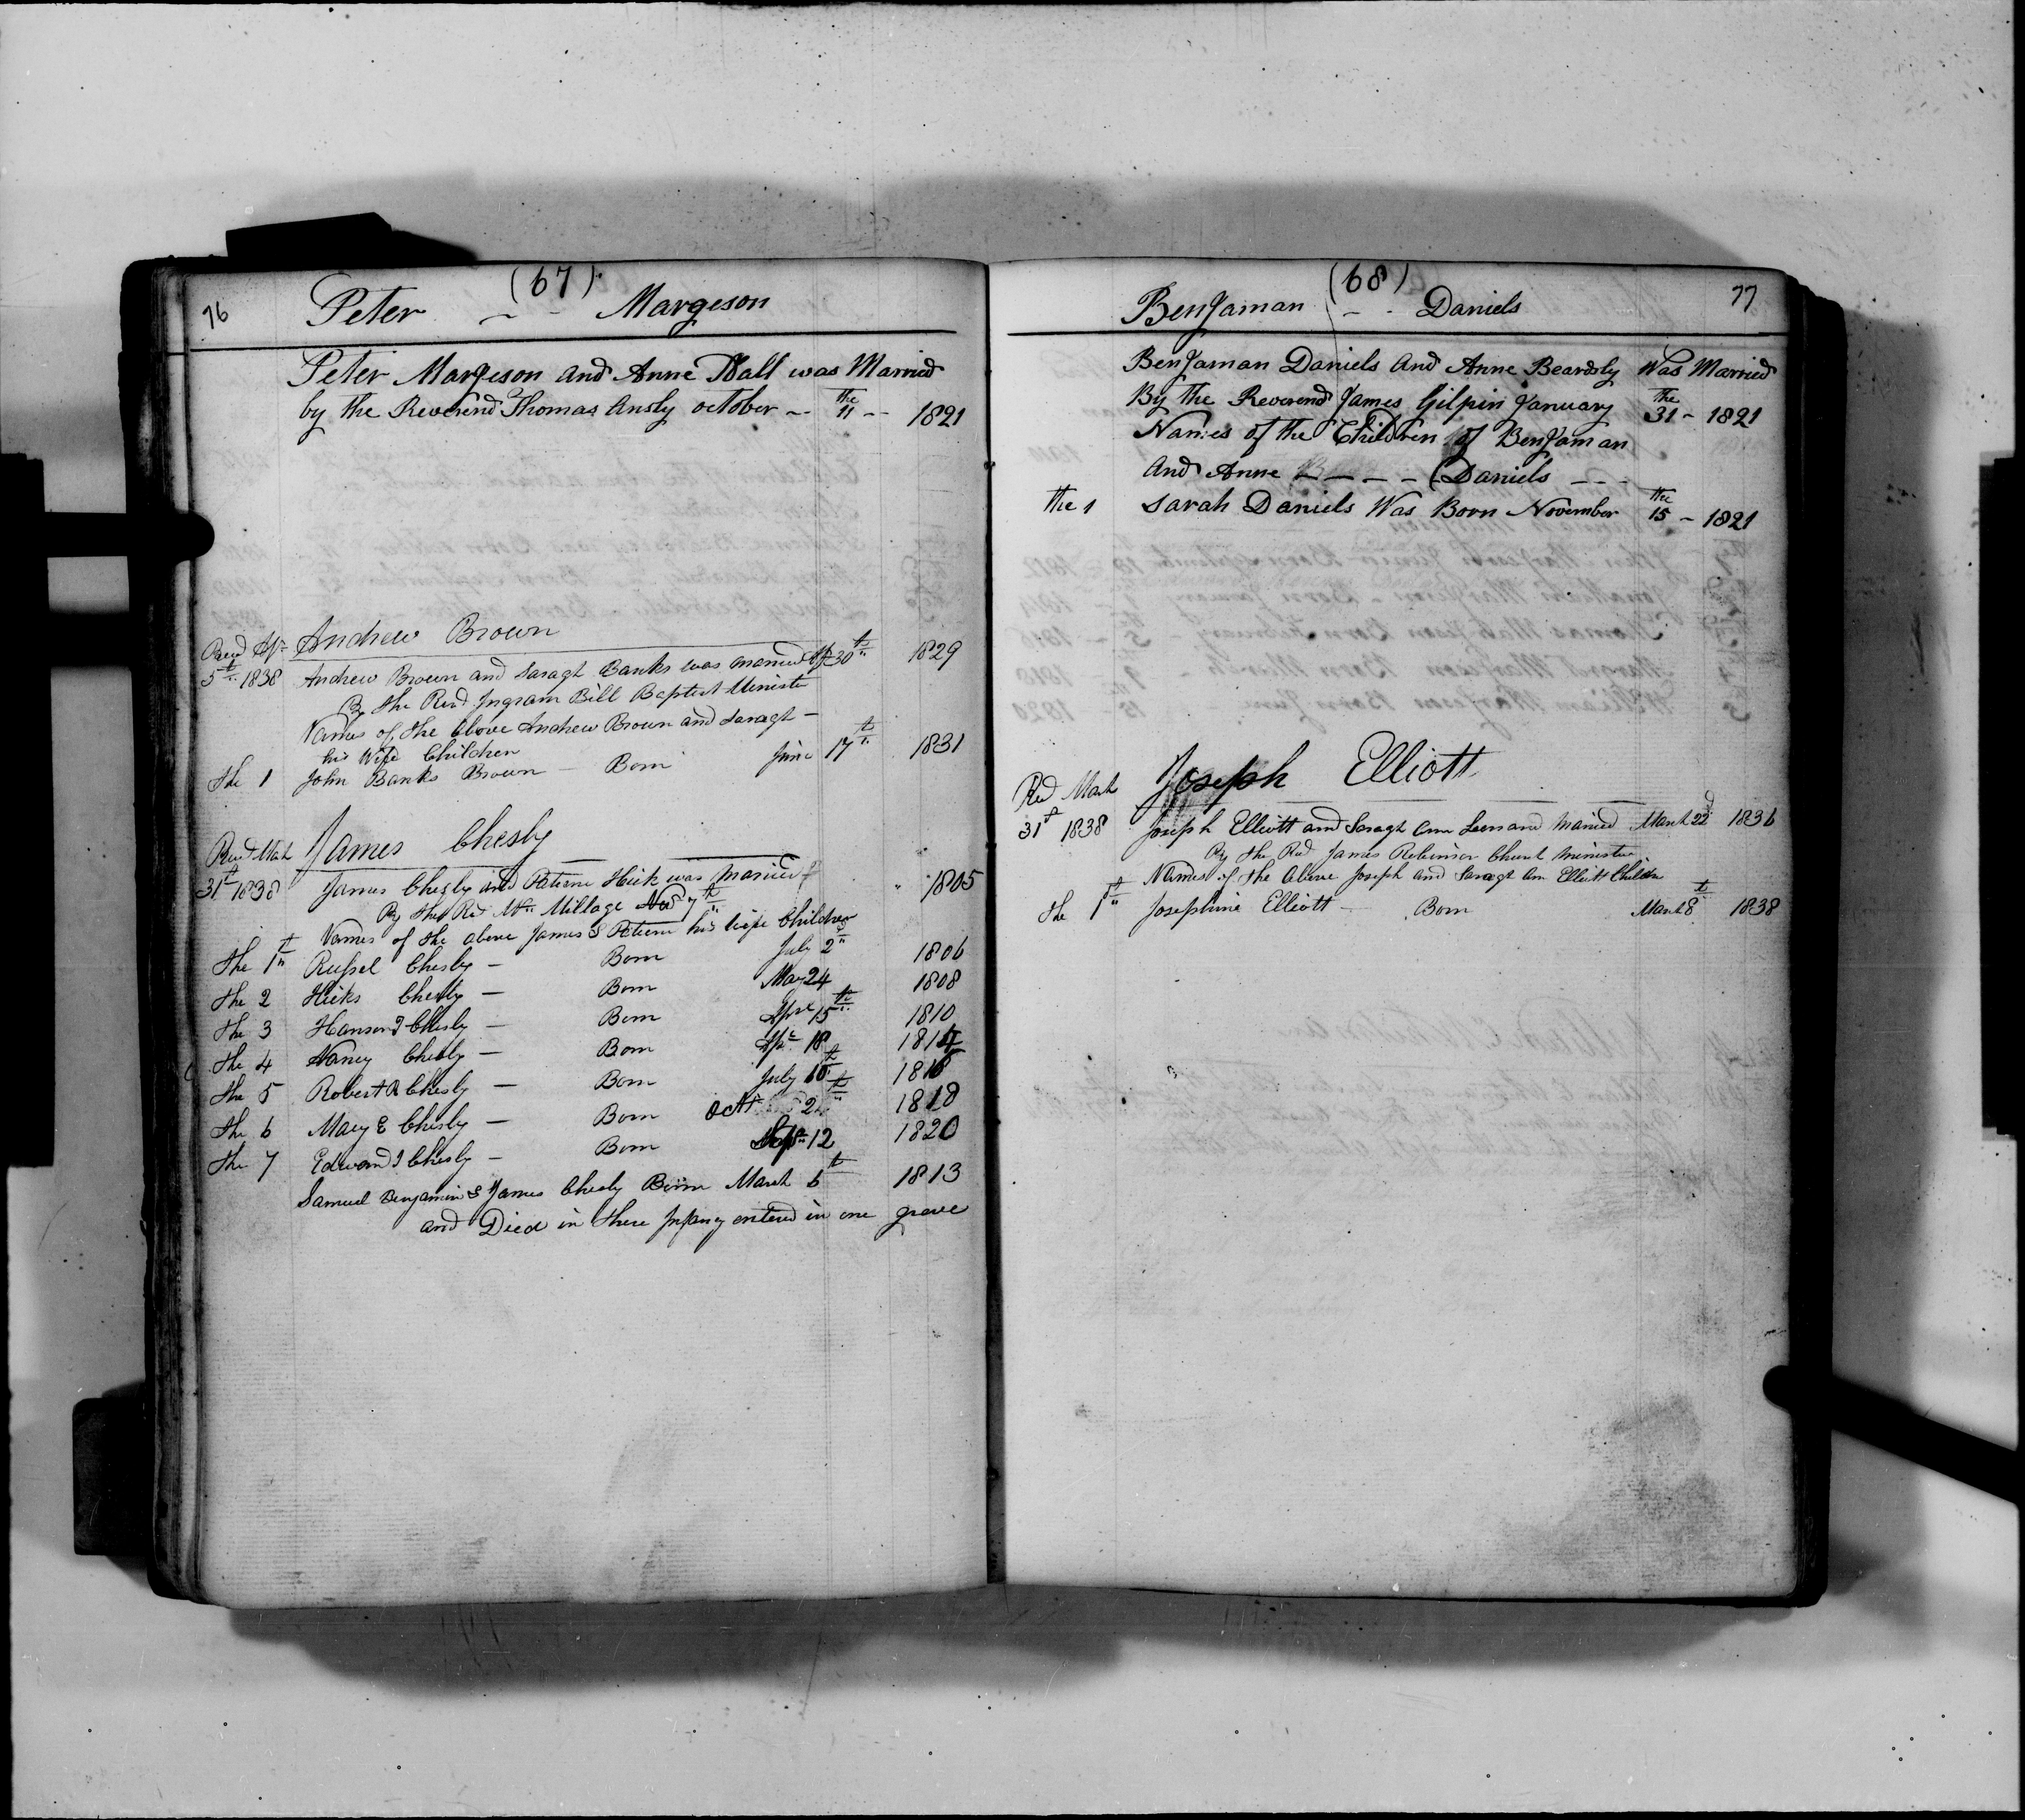 76
(67)
Peter - - Margeson
Peter Margeson and Anne Hall was Married
by the Reverend Thomas Ansly october - the 11 - 1821
Andrew Brown
Recd Apr
5th 1838 Andrew Brown and Saragh Banks was married 30th 1829
By the Revd Ingram Bill Baptist Ministr
Names of the Above Andrew Brown and Saragh -
his Wife Children
the 1 John Banks Brown - Born June 17th 1831
James Chesly
Recd Mah
31st 1838 James Chesly and Patiene Hick was Married 1805
By the Red Mr Millage 7th
Names of the above James & Patiene his wife Children
the 1th Russel Chesly - Born July 2d 1806
the 2 Hicks Chesly - Born May 24 1808
the 3 Hanson T Chesly - Born Aprl 15th 1810
the 4 Nancy Chesly - Born Apr 18 1814
the 5 Robert R Chesly - Born July 10th 1816
the 6 Mary E Chesly - Born Oct 2 1818
the 7 Edward J Chesly - Born Sept 12 1820
Samuel Benjamin & James Chesly Born March 6th 1813
and Died in there Infancy entered in one grave
77
(68)
Benjaman - - Daniels
Benjaman Daniels And Anne Beardsly Was Married
By the Reverend James Gilpin January the 31 - 1821
Names of the Children of Benjaman
And Anne - - - (Daniels - - -
the 1 Sarah Daniels Was Born November the 15 - 1821
Joseph Elliott
Red March
31st 1838 Joseph Elliott and Saragh Ann Leonard Maried March 22d 1836
By the Red James Robinson Church Minister
Names of the Above Joseph and Saragh Ann Elliott Childn
the 1th Josephine Elliott - Born March 8th 1838